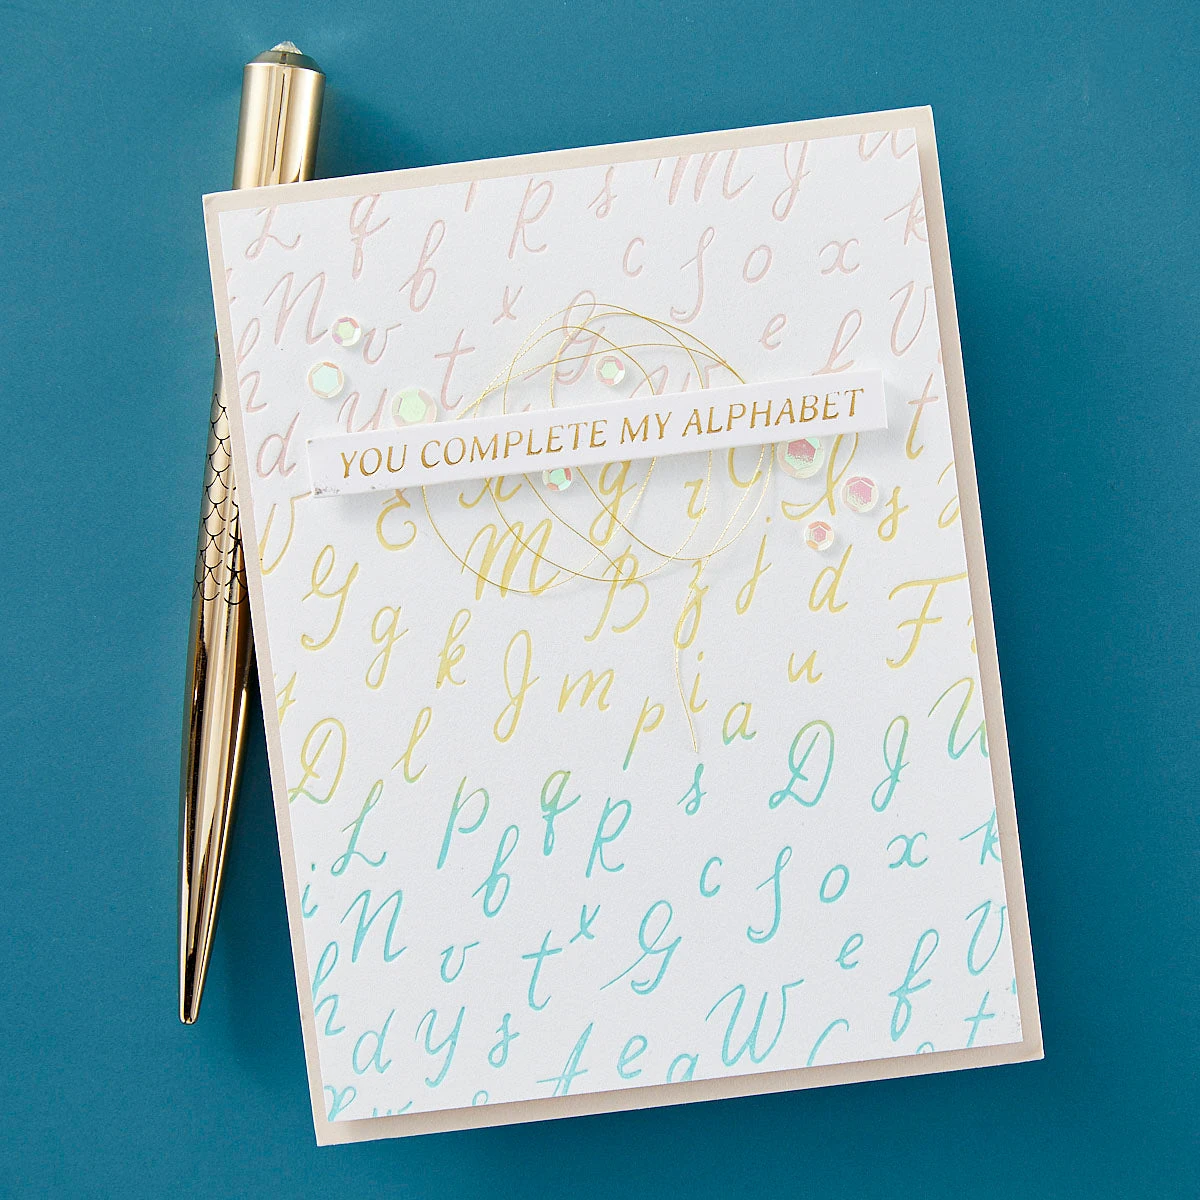 L q R s M J
N b c S o x k
h v t x G e f V
d y W t
YOU COMPLETE MY ALPHABET
E g r s
G g k M B z j d F
D l J m p i a u
L p q R s D J U
i N b c S o x k
h v t x G e f V
d y s A e a W t